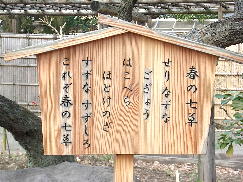 春の七草
せりなずな
ごぎょう
はこべら
ほとけのざ
すずな すずしろ
これぞ春の七草